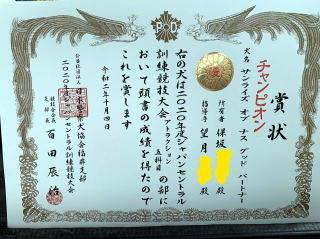 PD
賞状
チャンピオン
犬名 サンライズ オブ ナス グッド パートナー
所有者 保坂 殿
指導手 望月 殿
右の犬は二〇二〇年度ジャパンセントラル
訓練競技大会 アトラクション 五科目 の部に
おいて頭書の成績を得たので
これを賞します
令和二年十月四日
公益社団法人
日本 犬協会福井支部
二〇二〇年度ジャパンセントラル訓練競技大会
競技会会長
支部長 百田辰治